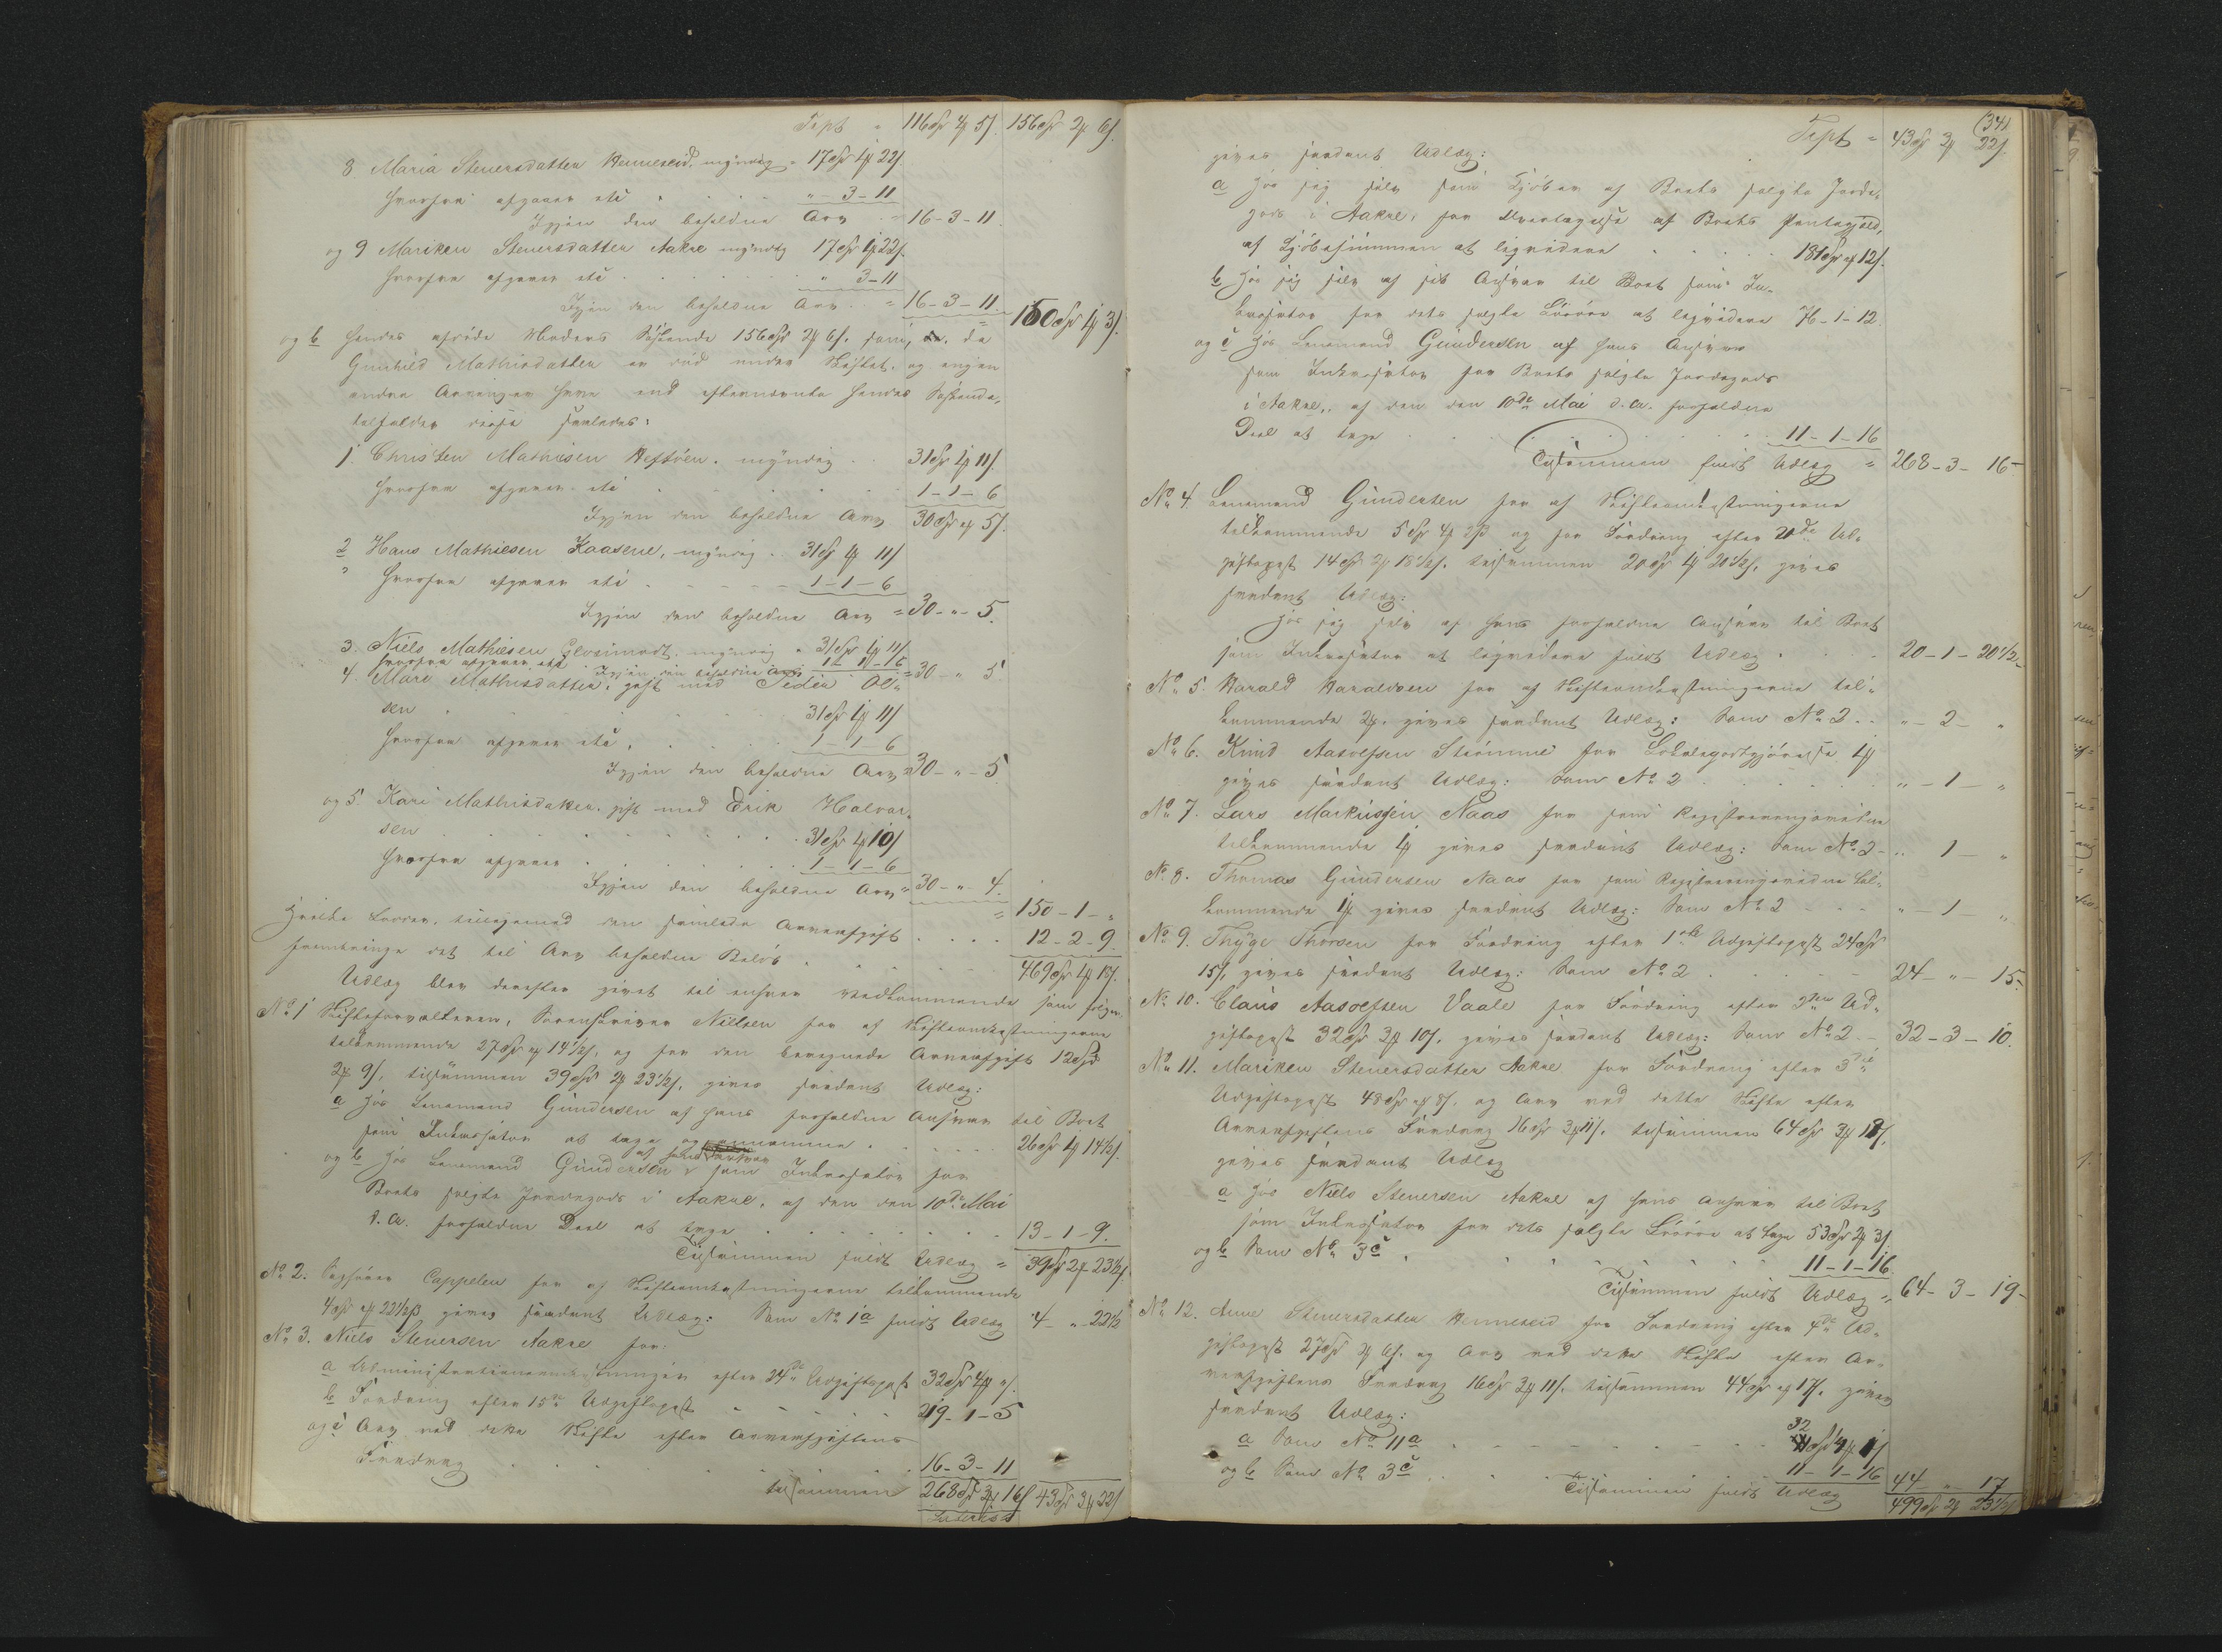 Tspt = 116 Spd 4 ß 156 Spd 2 6 ß.
8 Maria Steuersdatter Henneseid, myndig = 17 Spd 4 22 ß.
hvorfra afgaaer etc. " - 3 - 11
Igjen den beholdne Arv = 16 - 3 - 11.
og 9 Mariken Steuersdatter Aakre myndig 17 Spd 4 22 ß.
hvorfra afgaaer etc. " 3 - 11
Igjen den beholdne Arv = 16 - 3 - 11. 150 Spd 4 3 ß.
og b hendes afdøde Moders Søskende 156 Spd 2 6 ß. som, da
Gunhild Mathisdatter er død under Skiftet, og ingen
andre Arvinger have end efternævnte hendes Søskende,
tilfalder disse saaledes:
1. Christen Mathisen Heftøen, myndig 31 Spd 1 11 ß.
hvorfra afgaaer etc. 1 - 1 - 6
Igjen den beholdne Arv 30 Spd " 5 ß.
2 Hans Mathiesen Kaasene, myndig 31 Spd 1 11 ß
hvorfra afgaaer etc. 1 - 1 - 6
Igjen den beholdne Arv = 30 - " - 5.
3. Niels Mathiesen myndig = 31 Spd 1 11 ß
hvorfra afgaaer etc. 1 - 1 - 6 Igjen den beholdne Arv = 30 - " 5.
4. Mari Mathisdatter, gift med Peder Ol-
sen 31 Spd 1 11 ß
hvorfra afgaaer etc. 1 - 1 - 6
Igjen den beholdne Arv = 30 - " - 5
og 5. Kari Mathisdatter, gift med Erik Halvor-
sen 31 Spd 1 10 ß
hvorfra afgaaer 1 - 1 - 6
Igjen den beholdne Arv = 30 - " - 4.
= 150 - 1 - "
Hvilke Lodder, tilligemed den samlede Arveafgift 12 - 2 - 9.
frembringe det til Arv beholdne Beløb 469 Spd 4 18 ß.
Udlæg blev derefter givet til enhver Vedkommende som følger:
No 1 Skifteforvalteren, Sorenskriver Nielsen for af Skifteomkostningerne
tilkommende 27 Spd " 14½ ß, og for den beregnede Arveafgift 12 Spd
2 9 ß, tilsammen 39 Spd 2 23½ ß, gives saadant Udlæg:
a Hos Lensmand Gundersen af hans forfaldne Ansvar til Boet
som Inkassator at tage 26 Spd 1 14½ ß.
og b Hos Lensmand Gundersen af hans Ansvar som Inkassator for
Boets solgte Jordegods i Aakre, af den den 10de Mai
d. A. forfaldne Deel at tage 13 - 1 - 9.
Tilsammen fuldt Udlæg = 39 Spd 2 23½ ß.
No 2. Sagfører Cappelen for af Skifteomkostningerne tilkommende
4 Spd " 22½ ß gives saadant Udlæg: Som No 1 a fuldt Udlæg 4 - " - 22½
No 3. Niels Steuersen Aakre for:
a Administrationsomkostninger efter 24de Udgiftspost 32 Spd 4 " ß.
b Fordring efter 15de Udgiftspost 219 - 1 - 5
og c Arv ved dette Skifte efter Arveafgiftens
Fradrag 16 - 3 - 11
tilsammen 268 Spd 3 16 ß 43 Spd 3 22 ß
(341
Tspt = 43 Spd 3 22 ß.
gives saadant Udlæg:
a Hos sig selv som Kjøber af Boets solgte Jorde-
gods i Aakre, for Overtagelse af Boets Pantegjæld,
af Kjøbesummen at liqvidere 181 Spd " 12 ß.
b Hos sig selv af sit Ansvar til Boet som In-
kassator for dets solgte Løsøre at liqvidere 76 - 1 - 12.
og c Hos Lensmand Gundersen af hans Ansvar
som Inkassator for Boets solgte Jordegods
i Aakre, af den den 10de Mai d. A. forfaldne
Deel at tage 11 - 1 - 16
Tilsammen fuldt Udlæg = 268 - 3 - 16 -
No 4. Lensmand Gundersen for af Skifteomkostningerne
tilkommende 5 Spd 4 2 ß og for Fordring efter 2de Ud-
giftspost 14 Spd 2 18½ ß. tilsammen 20 Spd 1 20½ ß, gives
saadant Udlæg:
Hos sig selv af hans forfaldne Ansvar til Boet
som Inkassator at liqvidere fuldt Udlæg 20 - 1 - 20½ -
No 5. Harald Haraldsen for af Skifteomkostningerne til-
kommende 2. gives saadant Udlæg: Som No 2 " - 2 - "
No 6. Knud Aasolfsen Strømme for Lokalegodtgjørelse 1
gives saadant Udlæg: Som No 2 " - 1 - "
No 7. Lars Markussen Naas for som Registreringsvidne
tilkommende 1 gives saadant Udlæg: Som No 2 - " 1 - "
No 8. Thomas Gundersen Naas for som Registreringsvidne til-
kommende 1 gives saadant Udlæg: Som No 2 " - 1 - "
No 9. Thyge Thorsen for Fordring efter 1ste Udgiftspost 24 Spd
15 ß, gives saadant Udlæg: Som No 2 24 - " - 15.
No 10. Claus Aasolfsen Vaale for Fordring efter 2den Ud-
giftspost 32 Spd 3 10 ß. gives saadant Udlæg: Som No 2 - 32 - 3 - 10.
No 11. Mariken Steuersdatter Aakre for Fordring efter 3die
Udgiftspost 48 Spd " 8 ß. og Arv ved dette Skifte efter
Arveafgiftens Fradrag 16 Spd 3 11 ß. tilsammen 64 Spd 3 19 ß,
gives saadant Udlæg
a Hos Niels Steuersen Aakre af hans Ansvar til Boet
som Inkassator for dets solgte Løsøre at tage 53 Spd 2 3 ß
og b Som No 3 c 11 - 1 - 16
Tilsammen fuldt Udlæg = 64 - 3 - 19 -
No 12. Anne Steuersdatter Henneseid for Fordring efter 4de Ud-
giftspost 27 Spd 2 6 ß. og Arv ved dette Skifte efter Ar-
veafgiftens Fradrag 16 Spd 3 11 ß. tilsammen 44 Spd " 17 ß. gives
saadant Udlæg:
a Som No 11 a 32 Spd 4 1 ß
og b Som No 3 c 11 - 1 - 16
Tilsammen fuldt Udlæg 44 - " - 17
499 Spd 2 23½ ß